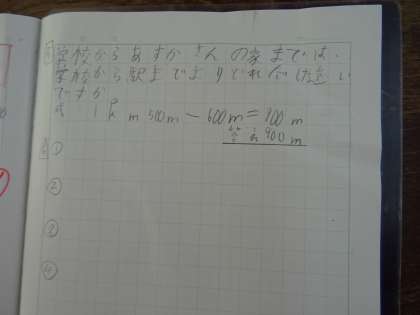 学校からあすかさんの家までは、
学校から駅までよりどれだけ遠い
ですか
式 1km500m-600m=900m
900m
①
②
③
④